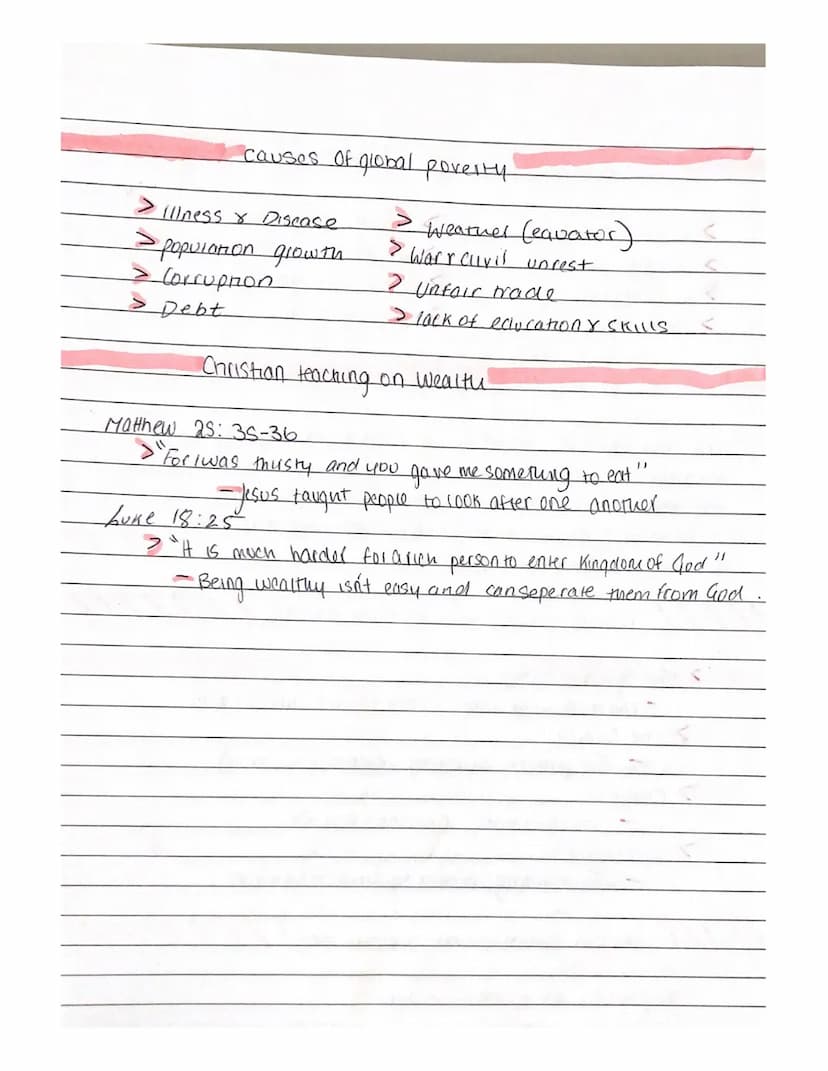 Causes Of global poverty
> Illness & Disease > Weather (equator)
> population growth > War & civil unrest
> Corruption > Unfair trade
> Debt > lack of education & skills
Christian teaching on Wealth
Matthew 25: 35-36
> "For I was thirsty and you gave me something to eat"
- Jesus taught people to look after one another
Luke 18:25
> "It is much harder for a rich person to enter Kingdom of God"
- Being wealthy isn't easy and can seperate them from God.